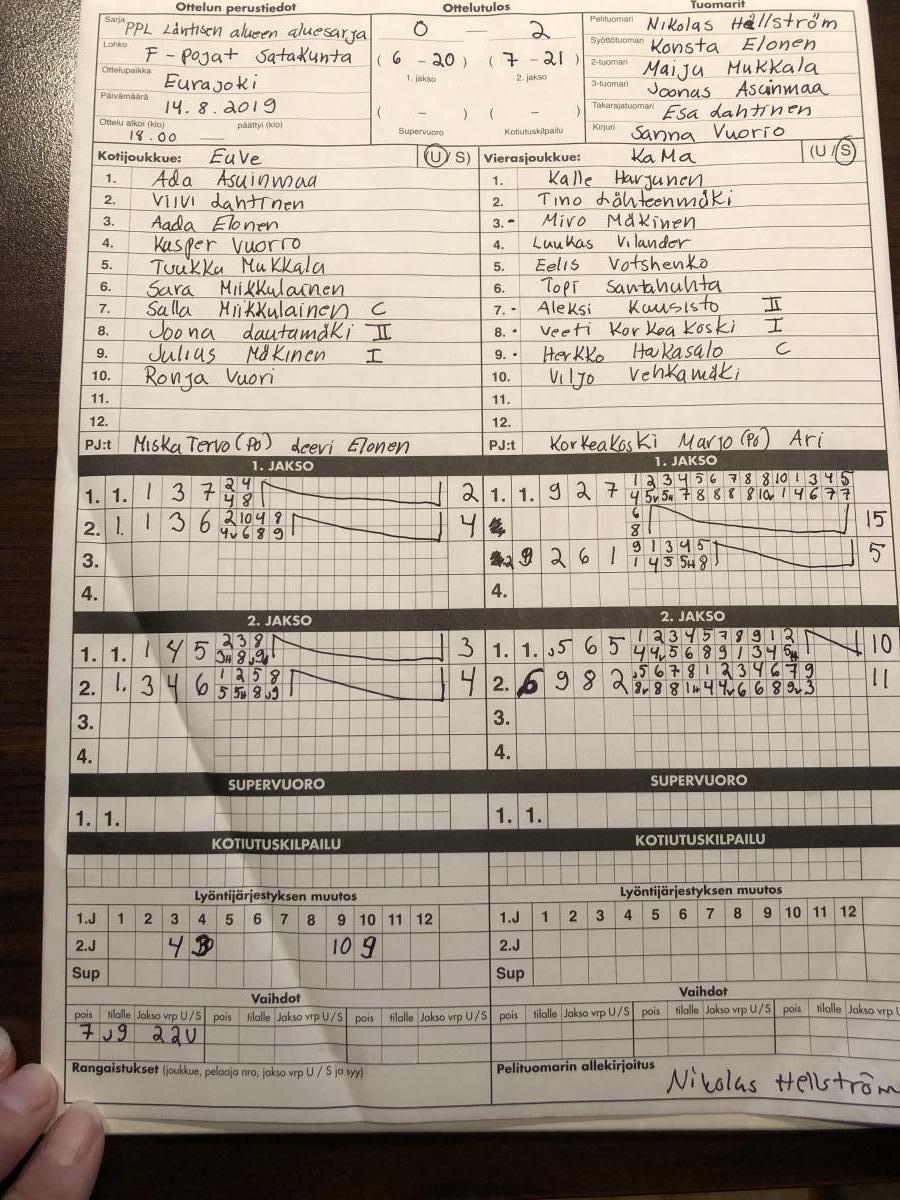 Ottelun perustiedot
Ottelutulos
Tuomarit
Sarja PPL Läntisen alueen aluesarja
Lohko F - Pojat Satakunta
Ottelupaikka Eurajoki
Päivämäärä 14.8.2019
Ottelu alkoi (klo) 18.00 päättyi (klo) —
0 — 2
( 6 - 20 ) ( 7 - 21 )
1. jakso 2. jakso
( - ) ( - )
Supervuoro Kotiutuskilpailu
Pelituomari Nikolas Hellström
Syöttötuomari Konsta Elonen
2-tuomari Maiju Mukkala
3-tuomari Joonas Asuinmaa
Takarajatuomari Esa Lahtinen
Kirjuri Sanna Vuorio
Kotijoukkue: EuVe (U/S)
1. Ada Asuinmaa
2. Viivi Lahtinen
3. Aada Elonen
4. Kasper Vuorio
5. Tuukka Mukkala
6. Sara Miikkulainen
7. Salla Miikkulainen C
8. Joona Lautamäki II
9. Julius Mäkinen I
10. Ronja Vuori
11.
12.
PJ:t Miska Tervo (Po) Leevi Elonen
Vierasjoukkue: KaMa (U/S)
1. Kalle Harjunen
2. Tino Lähteenmäki
3. - Miro Mäkinen
4. Luukas Vilander
5. Eelis Votshenko
6. Topi Santahuhta
7. - Aleksi Kuusisto II
8. - Veeti Korkeakoski I
9. - Herkko Hakasalo C
10. Viljo Vehkamäki
11.
12.
PJ:t Korkeakoski Marjo (Po) Ari
1. JAKSO
1. 1. 1 3 7 2 4 2
4 8
2. 1. 1 3 6 2 10 4 8 4
4v 6 8 9
3.
4.
1. JAKSO
1. 1. 9 2 7 1 2 3 4 5 6 7 8 8 10 1 3 4 5
4 5v 5H 7 8 8 8 8 10v 1 4 6 7 7
6 15
8
9 2 6 1 9 1 3 4 5 5
1 4 5 5H 8
4.
2. JAKSO
1. 1. 1 4 5 2 3 8 3
3H 8 J9
2. 1. 3 4 6 1 2 5 8 4
5 5H 8 J9
3.
4.
2. JAKSO
1. 1. 5 6 5 1 2 3 4 5 7 8 9 1 2 10
4 4v 5 6 8 9 1 3 4 5H
2. 6 9 8 2 5 6 7 8 1 2 3 4 6 7 9 11
8v 8 8 1H 4 4v 6 6 8 9v 3
3.
4.
SUPERVUORO
1. 1.
SUPERVUORO
1. 1.
KOTIUTUSKILPAILU
KOTIUTUSKILPAILU
Lyöntijärjestyksen muutos
1.J 1 2 3 4 5 6 7 8 9 10 11 12
2.J 4 3 10 9
Sup
Lyöntijärjestyksen muutos
1.J 1 2 3 4 5 6 7 8 9 10 11 12
2.J
Sup
Vaihdot
pois tilalle Jakso vrp U/S pois tilalle Jakso vrp U/S pois tilalle Jakso vrp U/S
7 J9 22U
Vaihdot
pois tilalle Jakso vrp U/S pois tilalle Jakso vrp U/S pois tilalle Jakso vrp U
Rangaistukset (joukkue, pelaaja nro, jakso vrp U / S ja syy)
Pelituomarin allekirjoitus
Nikolas Hellström